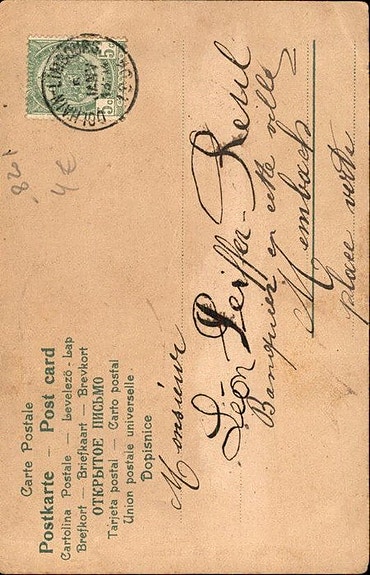 Carte Postale
Postkarte — Post card
Cartolina Postale — Levelező-Lap
Brefkort — Briefkaart — Brevkort
ОТКРЫТОЕ ПИСЬМО
Tarjeta postal — Carto postal
Union postale universelle
Dopisnice
5c 5c
DOLHAIN-LIMBOURG
Monsieur
Léon Peiffer-Reul
Banquier en cette ville
Membach
place verte
4 €